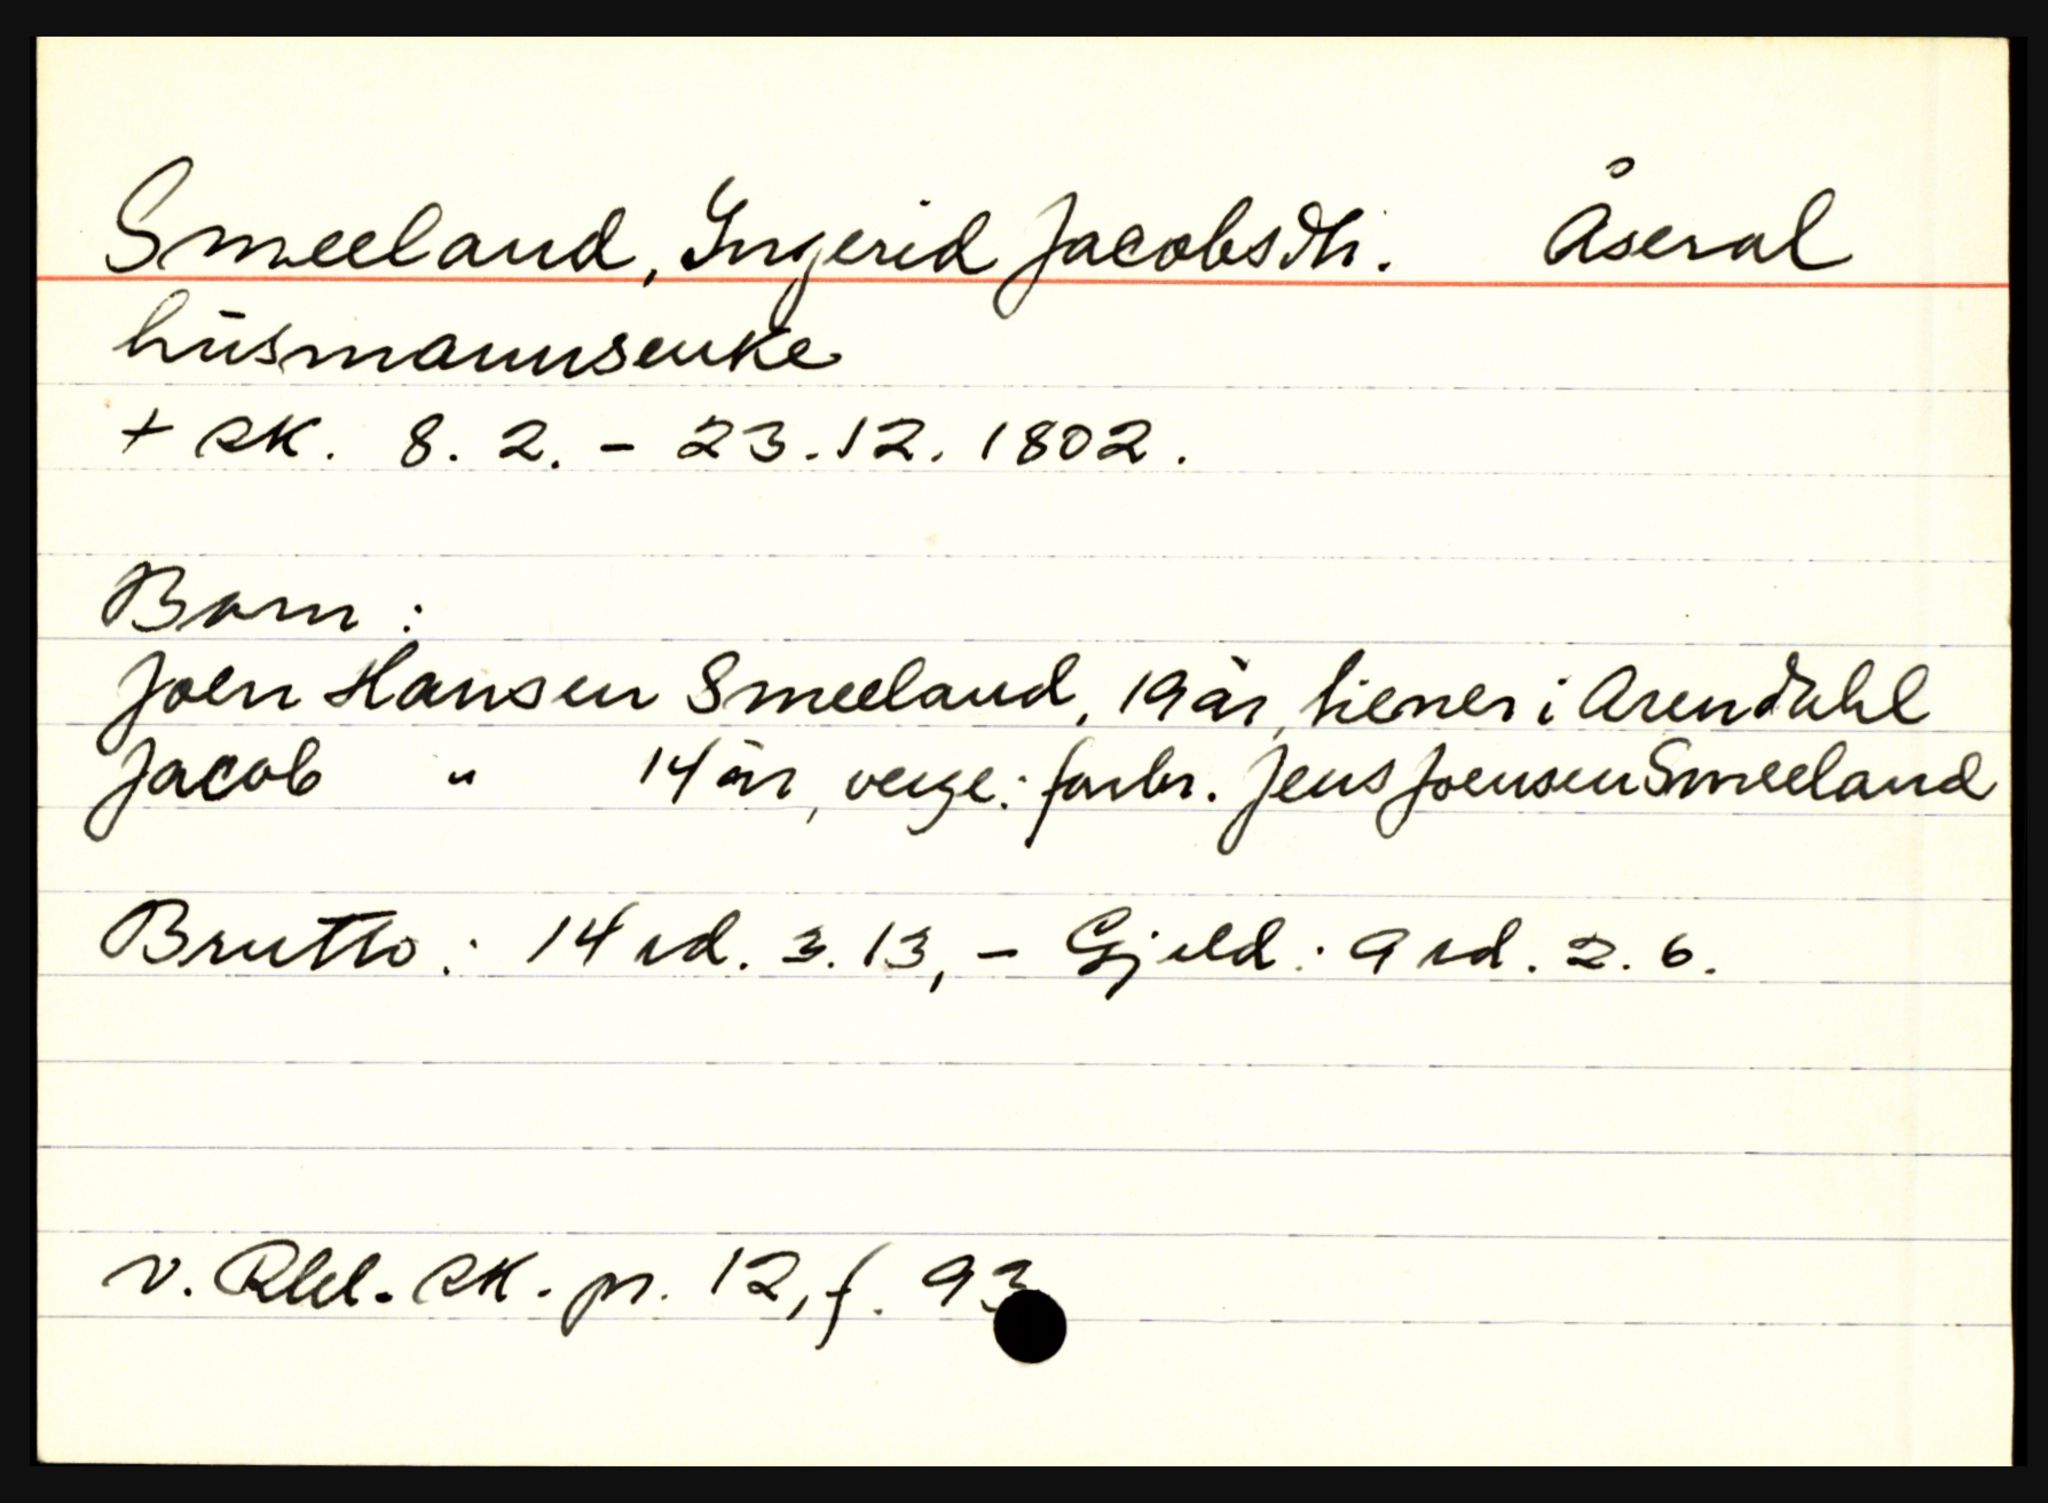 Smeeland, Ingerid Jacobsdtr. Åseral
husmannsenke
+ sk. 8. 2. - 23.12. 1802.
Born:
Joen Hansen Smeeland, 19 år, tiener i Arendahl
Jacob " 14 år, verge: farbr. Jens Joensen Smeeland
Brutto: 14 rd. 3. 13, - Gjeld: 9 rd. 2. 6.
v. Rbl. sk. pr. 12, f. 93